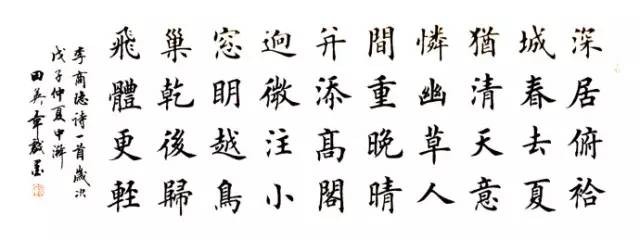 深居俯袷
城春去夏
猶清天意
憐幽草人
間重晚晴
并添髙閣
逈微注小
窓明越鳥
巢乾後歸
飛體更輕
李商隱詩一首歲次
戊子仲夏中澣
田英章敬墨